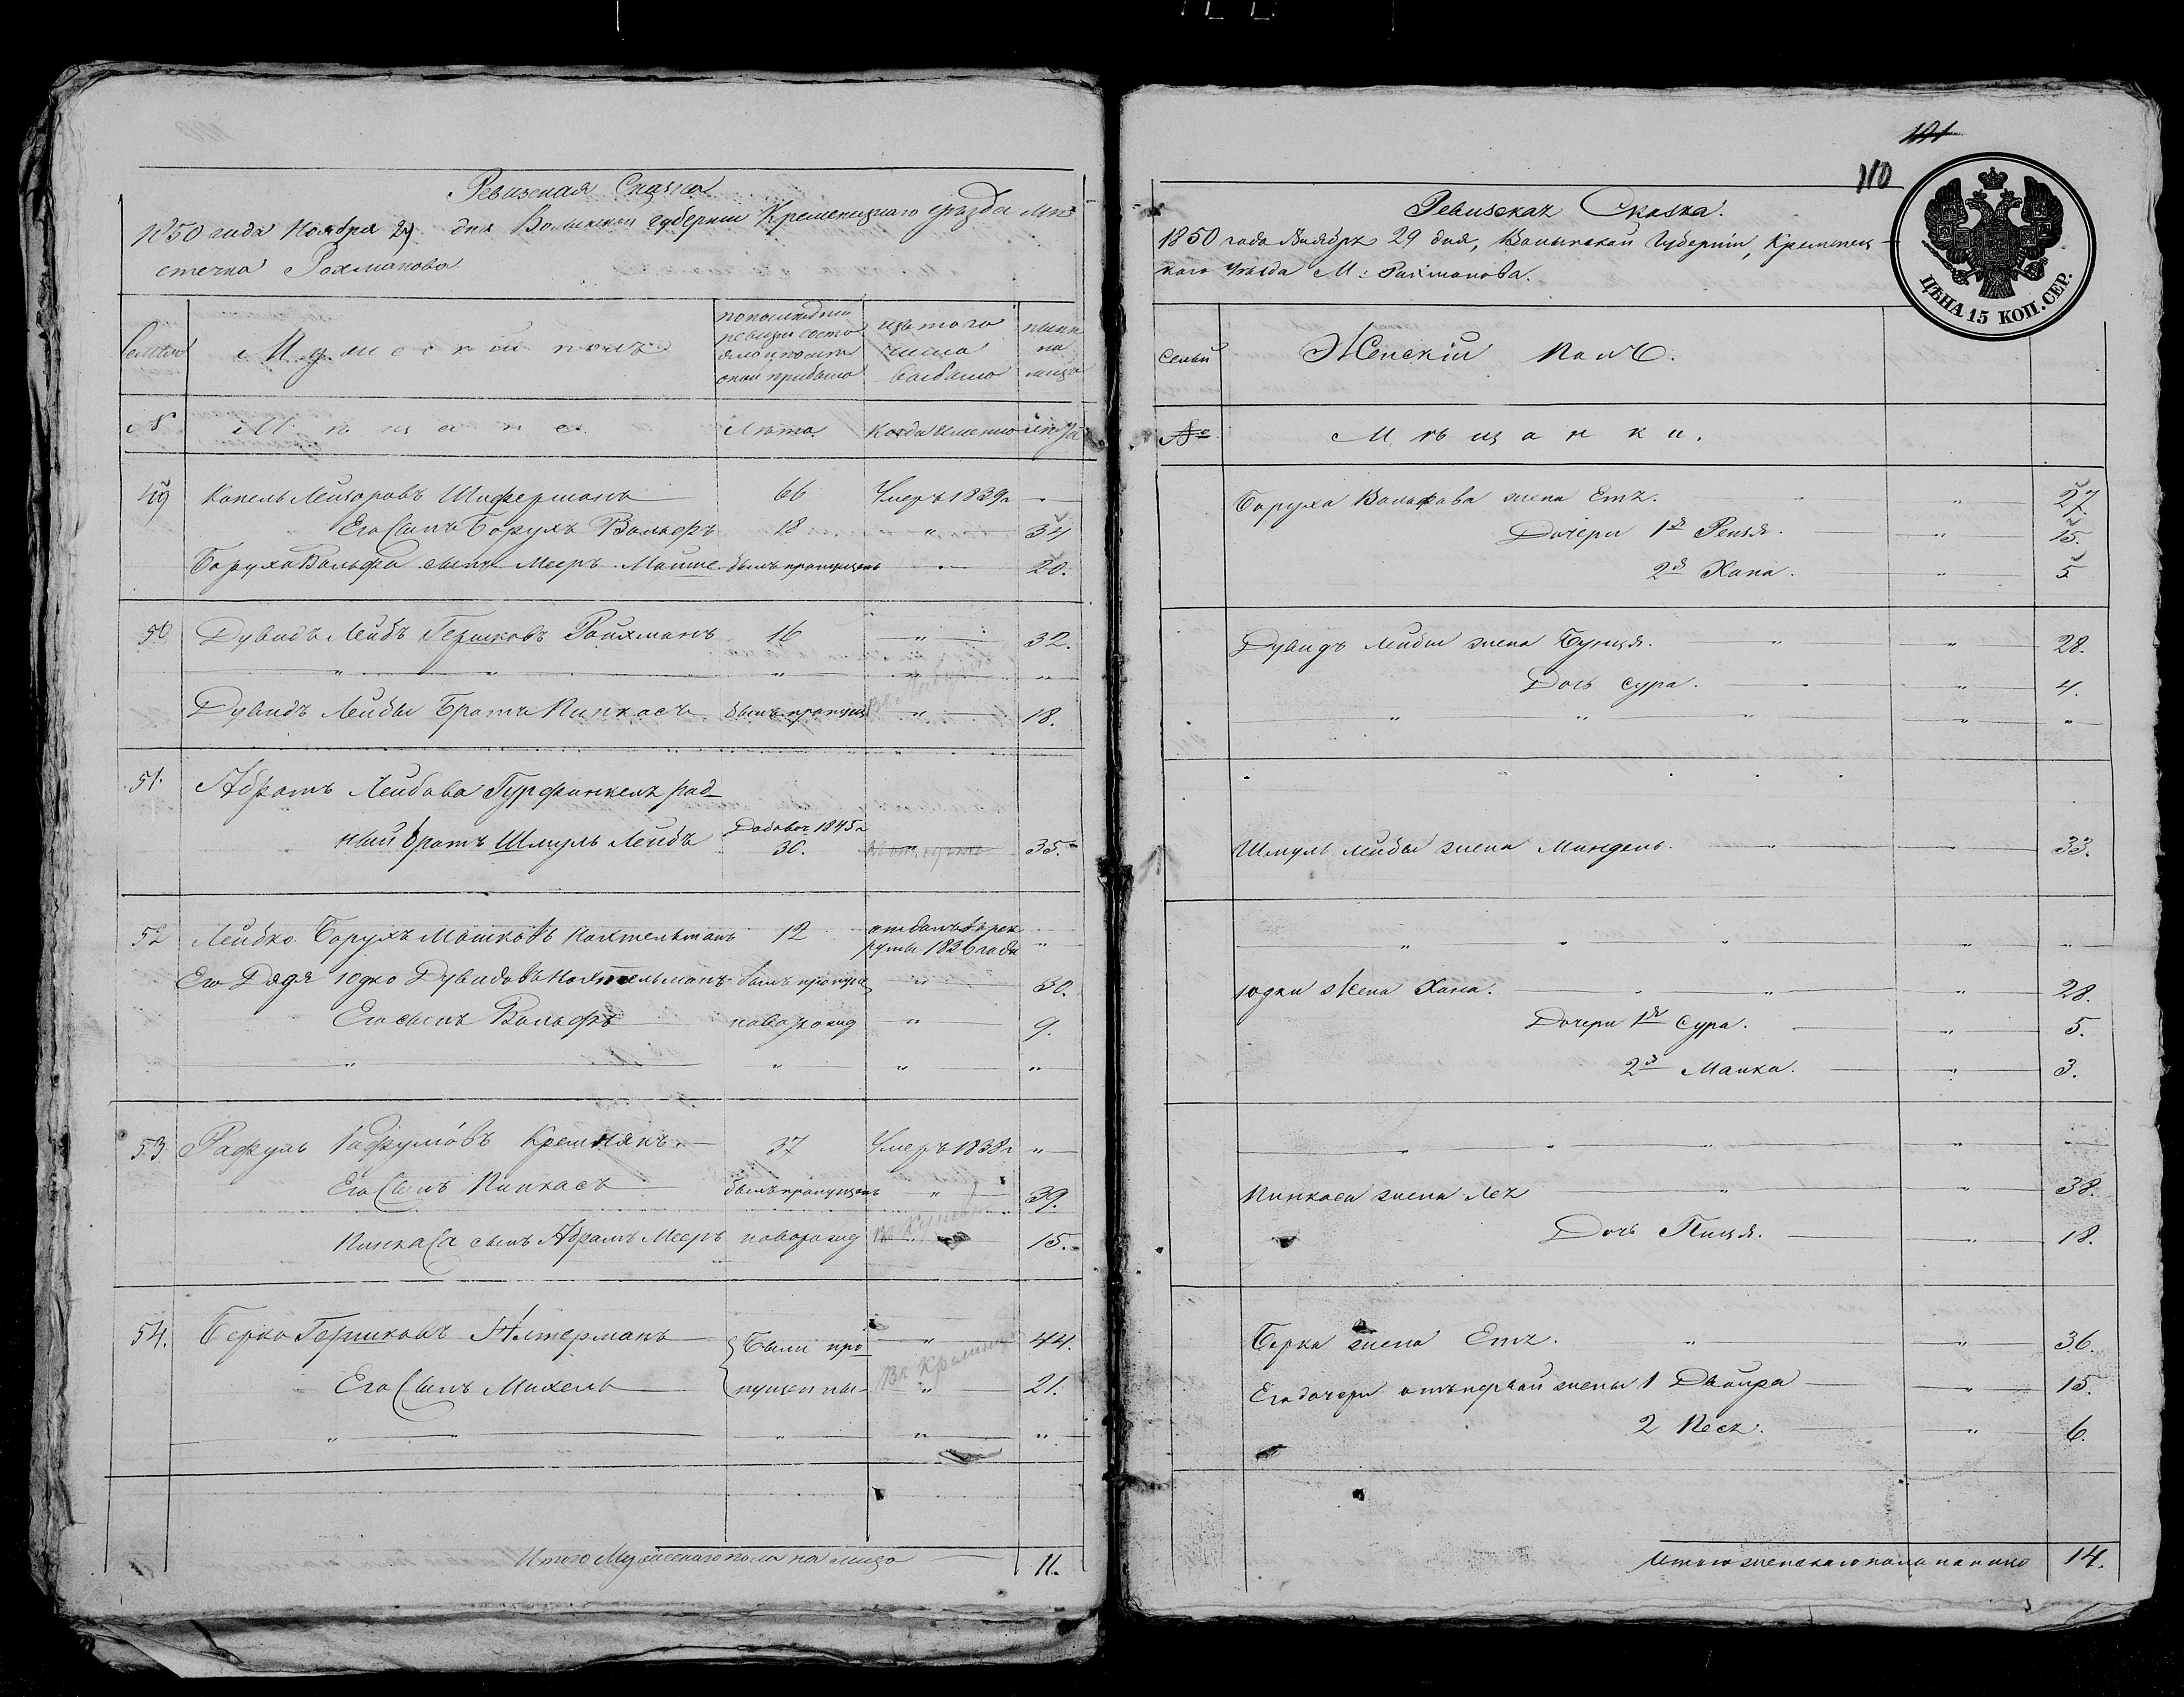 Ревизская Сказка
1850 года Ноября 29 дня Волынской губернии Кременецкаго уезда Мѣ
стечка Рохманова
Семьи
Мужеский полъ
по последней ревизии состояло и после оной прибыло
изъ того числа выбыло
ныне на лицо
№
Мѣщане
Лѣта.
Когда именно
Лѣта
49 Капель Лейзоровъ Шиферманъ 66 Умеръ 1839 г "
Его Сынъ Борухъ Вольфъ 18 " 34
Боруха Вольфа сынъ Мееръ Мошко былъ пропущенъ " 20.
50 Дувидъ Лейбъ Гершковъ Ройхманъ 16 " 32.
" " " " "
Дувидъ Лейбы Братъ Пинхасъ былъ пропущ " 18.
51. Абрамъ Лейбова Гурфинкель род
ный братъ Шмуль Лейбъ Добавоч 1845 г 30. " 35.
52 Лейбко Борухъ Мошковъ Нахтельманъ 12 отданъ въ рек
руты 1836 года "
Его Дядя Юдко Дувидовъ Нахтельманъ былъ пропущ " 30.
Его сынъ Вольфъ новорожд " 9.
" " " "
53 Рафуль Рафуловъ Кремнякъ 37 Умеръ 1838 г "
Его Сынъ Пинхасъ былъ пропущенъ " 39.
Пинхаса сынъ Абрамъ Мееръ новорожд " 15.
54. Берко Гершковъ Альтерманъ Были про " 44.
Его Сынъ Михель пущенны Въ Кременц " 21.
" " " "
Итого Мужескаго пола на лицо 11.
101
110
ЦѢНА 15 КОП. СЕР.
Ревизская Сказка.
1850 года Ноября 29 дня, Волынской Губерніи, Кременец
каго Уѣзда М: Рахманова.
Семьи
Женскій полъ.
№
Мѣщанки.
Боруха Вольфова жена Етя. " " 27.
Дочери 1я Рейзя. " 15.
2я Хана. " 5
Дувидъ Лейбы жена Бунця. " " 28.
Дочь Сура. " " 4.
" " " " "
Шмуль Лейбы жена Миндель. " " 33.
" " " " "
Юдки Жена Хана. " " " 28.
Дочери 1я Сура. " 5.
2я Малка. " 3.
" " " " "
Пинхаса жена Лея " " 38.
Дочь Пися. " 18.
Берка жена Етя. " " 36.
Его дочери отъ первой жены 1 Двойра " 15.
2 Песя. " 6.
Итого женскаго пола на лицо 14.